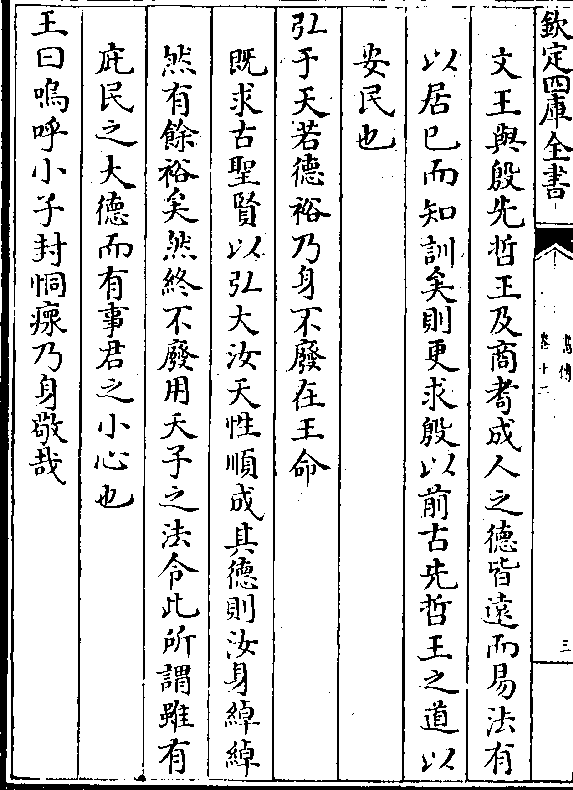 欽定四庫全書
書傳
卷十二
三
文王與殷先哲王及商耇成人之德皆遠而易法有
以居已而知訓矣則更求殷以前古先哲王之道以
安民也
弘于天若德裕乃身不廢在王命
既求古聖賢以弘大汝天性順成其德則汝身綽綽
然有餘裕矣然終不廢用天子之法令此所謂雖有
庇民之大德而有事君之小心也
王曰嗚呼小子封恫瘝乃身敬哉